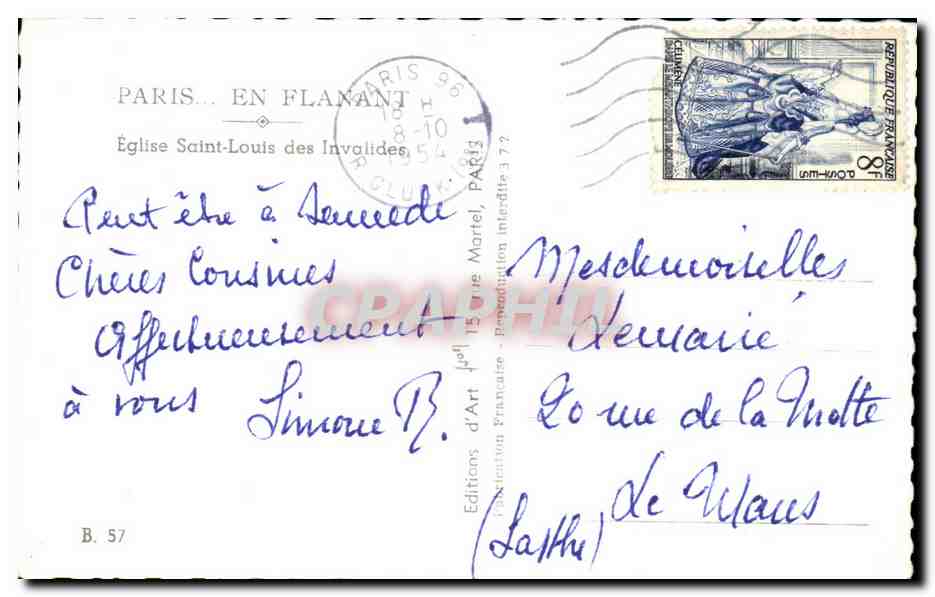 PARIS... EN FLANANT
Église Saint-Louis des Invalides
Peut être à Samedi
Chères Cousines
Affectueusement
à vous Simone B.
B. 57
Editions d'Art Yvon 15, rue Martel, PARIS
Fabrication Française - Reproduction interdite
PARIS 96
18 H
8-10
1954
R. GLUCK
RÉPUBLIQUE FRANÇAISE
CÉLIMÈNE
POSTES
8F
Mesdemoiselles
Lemarié
20 rue de la Motte
Le Mans
(Sarthe)
CPAPHIL